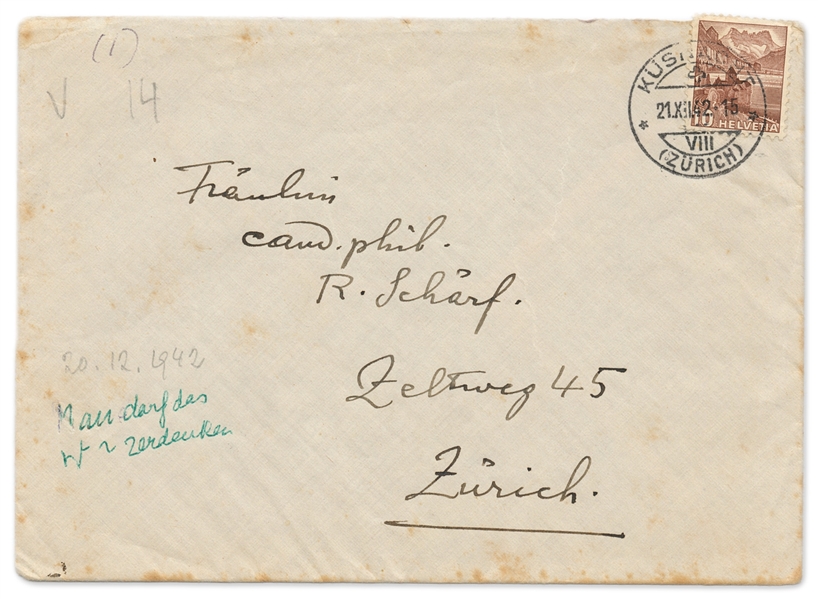 (1)
V 14
KÜSNACHT
21.XII.42-15
VIII
(ZÜRICH)
10 HELVETIA
Fräulein
cand. phil.
R. Schärf.
Zeltweg 45
Zürich.
20.12.1942
Man darf das
zerdenken